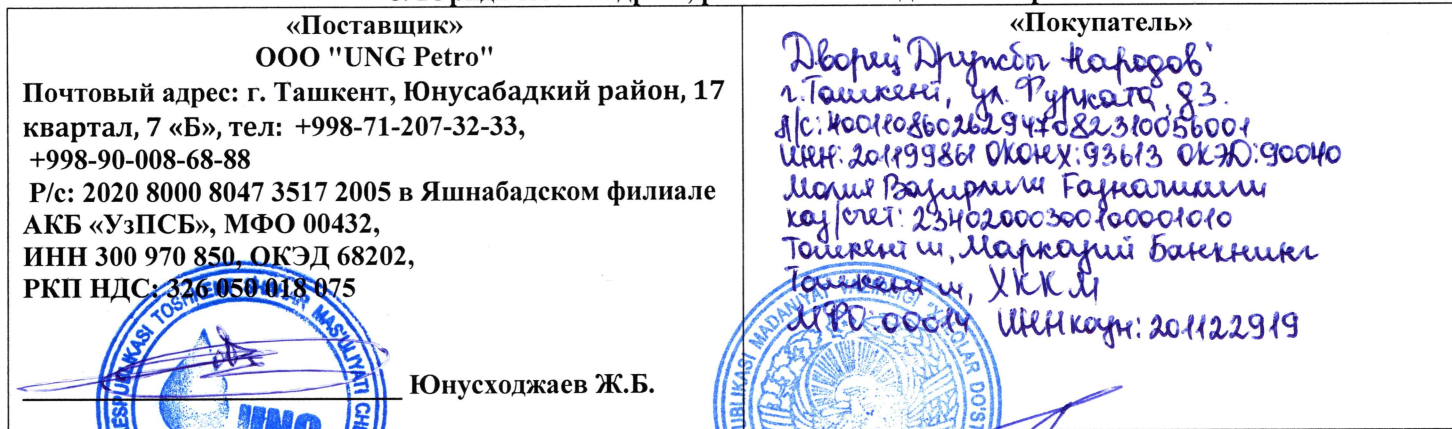 «Поставщик»
ООО "UNG Petro"
Почтовый адрес: г. Ташкент, Юнусабадкий район, 17
квартал, 7 «Б», тел: +998-71-207-32-33,
+998-90-008-68-88
Р/с: 2020 8000 8047 3517 2005 в Яшнабадском филиале
АКБ «УзПСБ», МФО 00432,
ИНН 300 970 850, ОКЭД 68202,
РКП НДС: 326 050 018 075
Юнусходжаев Ж.Б.
«Покупатель»
Дворец "Дружбы Народов"
г. Ташкент, ул. Фурката, 83.
л/с: 400110860262947082310056001
ИНН: 201199861 ОКОНХ: 93613 ОКЭД: 90040
Молия Вазирлиги Ғазначилиги
каз/счет: 23402000300100001010
Тошкент ш, Марказий Банкнинг
Тошкент ш, ХККМ
МФО: 00014 ИНН казн: 201122919
TOSHKENT SHAHAR MAS'ULIYATI
UNG
MADANIYAT VAZIRLIGI